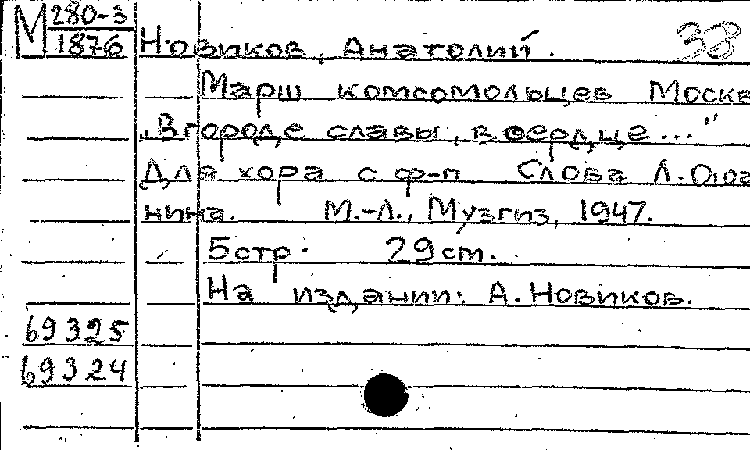 М 280-3
1876 Новиков, Анатолий. 38
Марш комсомольцев Москв
„В городе славы, в сердце..."
Для хора с ф-п Слова Л. Оша
нина. М.-Л., Музгиз, 1947.
5стр. 29см.
На издании: А. Новиков.
69325
69324